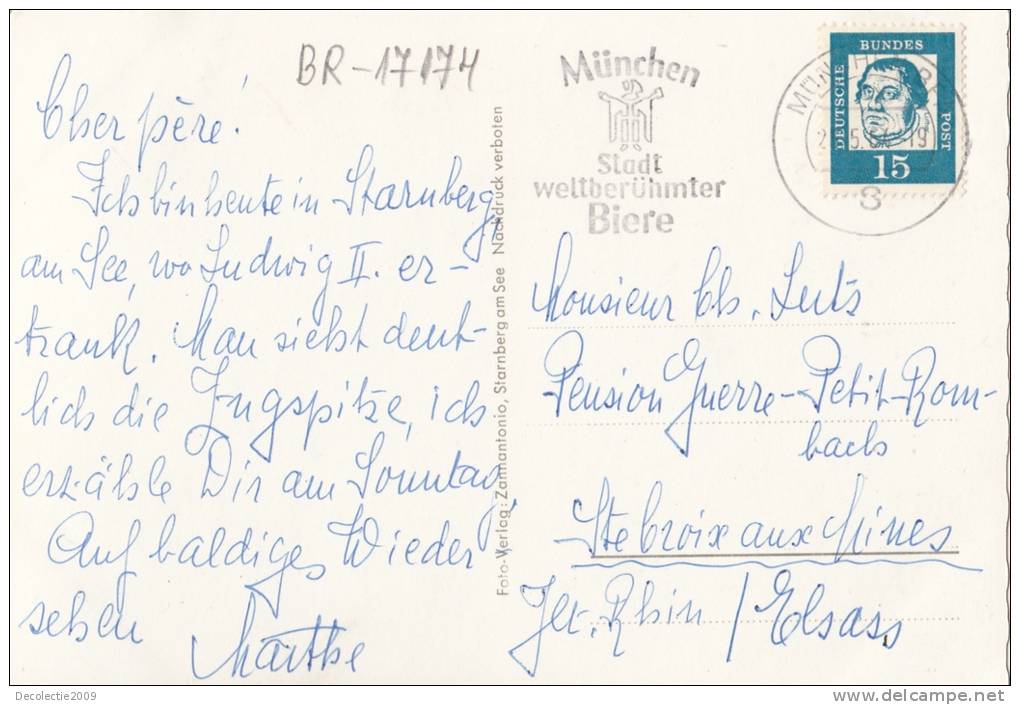 BR-17174
Cher père!
Ich bin heute in Starnberg
am See, wo Ludwig II. er-
trank. Man sieht deut-
lich die Zugspitze, ich
erzähle Dir am Sonntag.
Auf baldiges Wieder
sehen Marthe
Foto-Verlag: Zannantonio, Starnberg am See Nachdruck verboten
München
Stadt
weltberühmter
Biere
DEUTSCHE
BUNDES
POST
15
3
Monsieur Ch. Lutz
Pension Guerre-Petit-Rom-
bach
Ste Croix aux Mines
Rhin / Elsass
Decolectie2009
delcampe.net